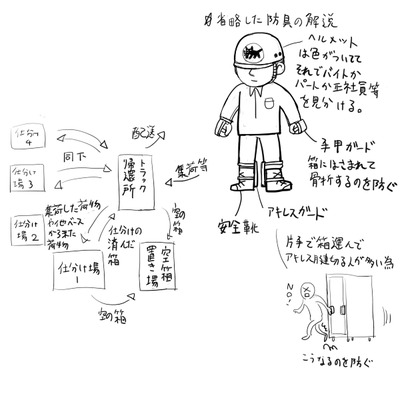 省略した防具の解説
ヘルメット
は色がついてて
それでバイトか
パートか正社員等
を見分ける。
手甲ガード
箱にはさまれて
骨折するのを防ぐ
アキレスガード
安全靴
片手で箱運んで
アキレス腱切る人が多い為
NO!
こうなるのを防ぐ
仕分け
4
仕分け
場3
仕分け
場2
仕分け場
1
同下
配送
トラック
帰還所
集荷等
集荷した荷物
や他ベース
から来た
荷物
仕分けの
済んだ
箱
空の箱
空箱
置き場
空の箱